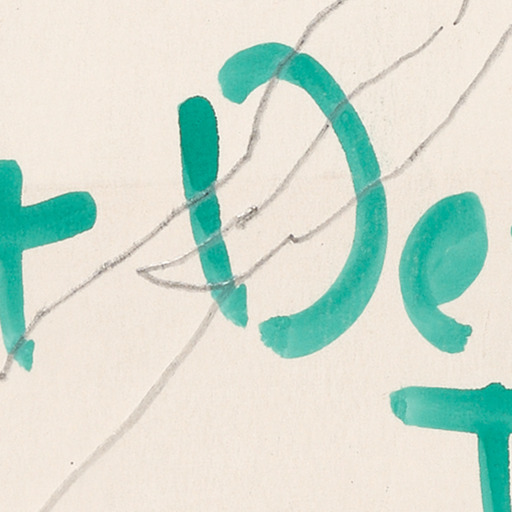 t De
T